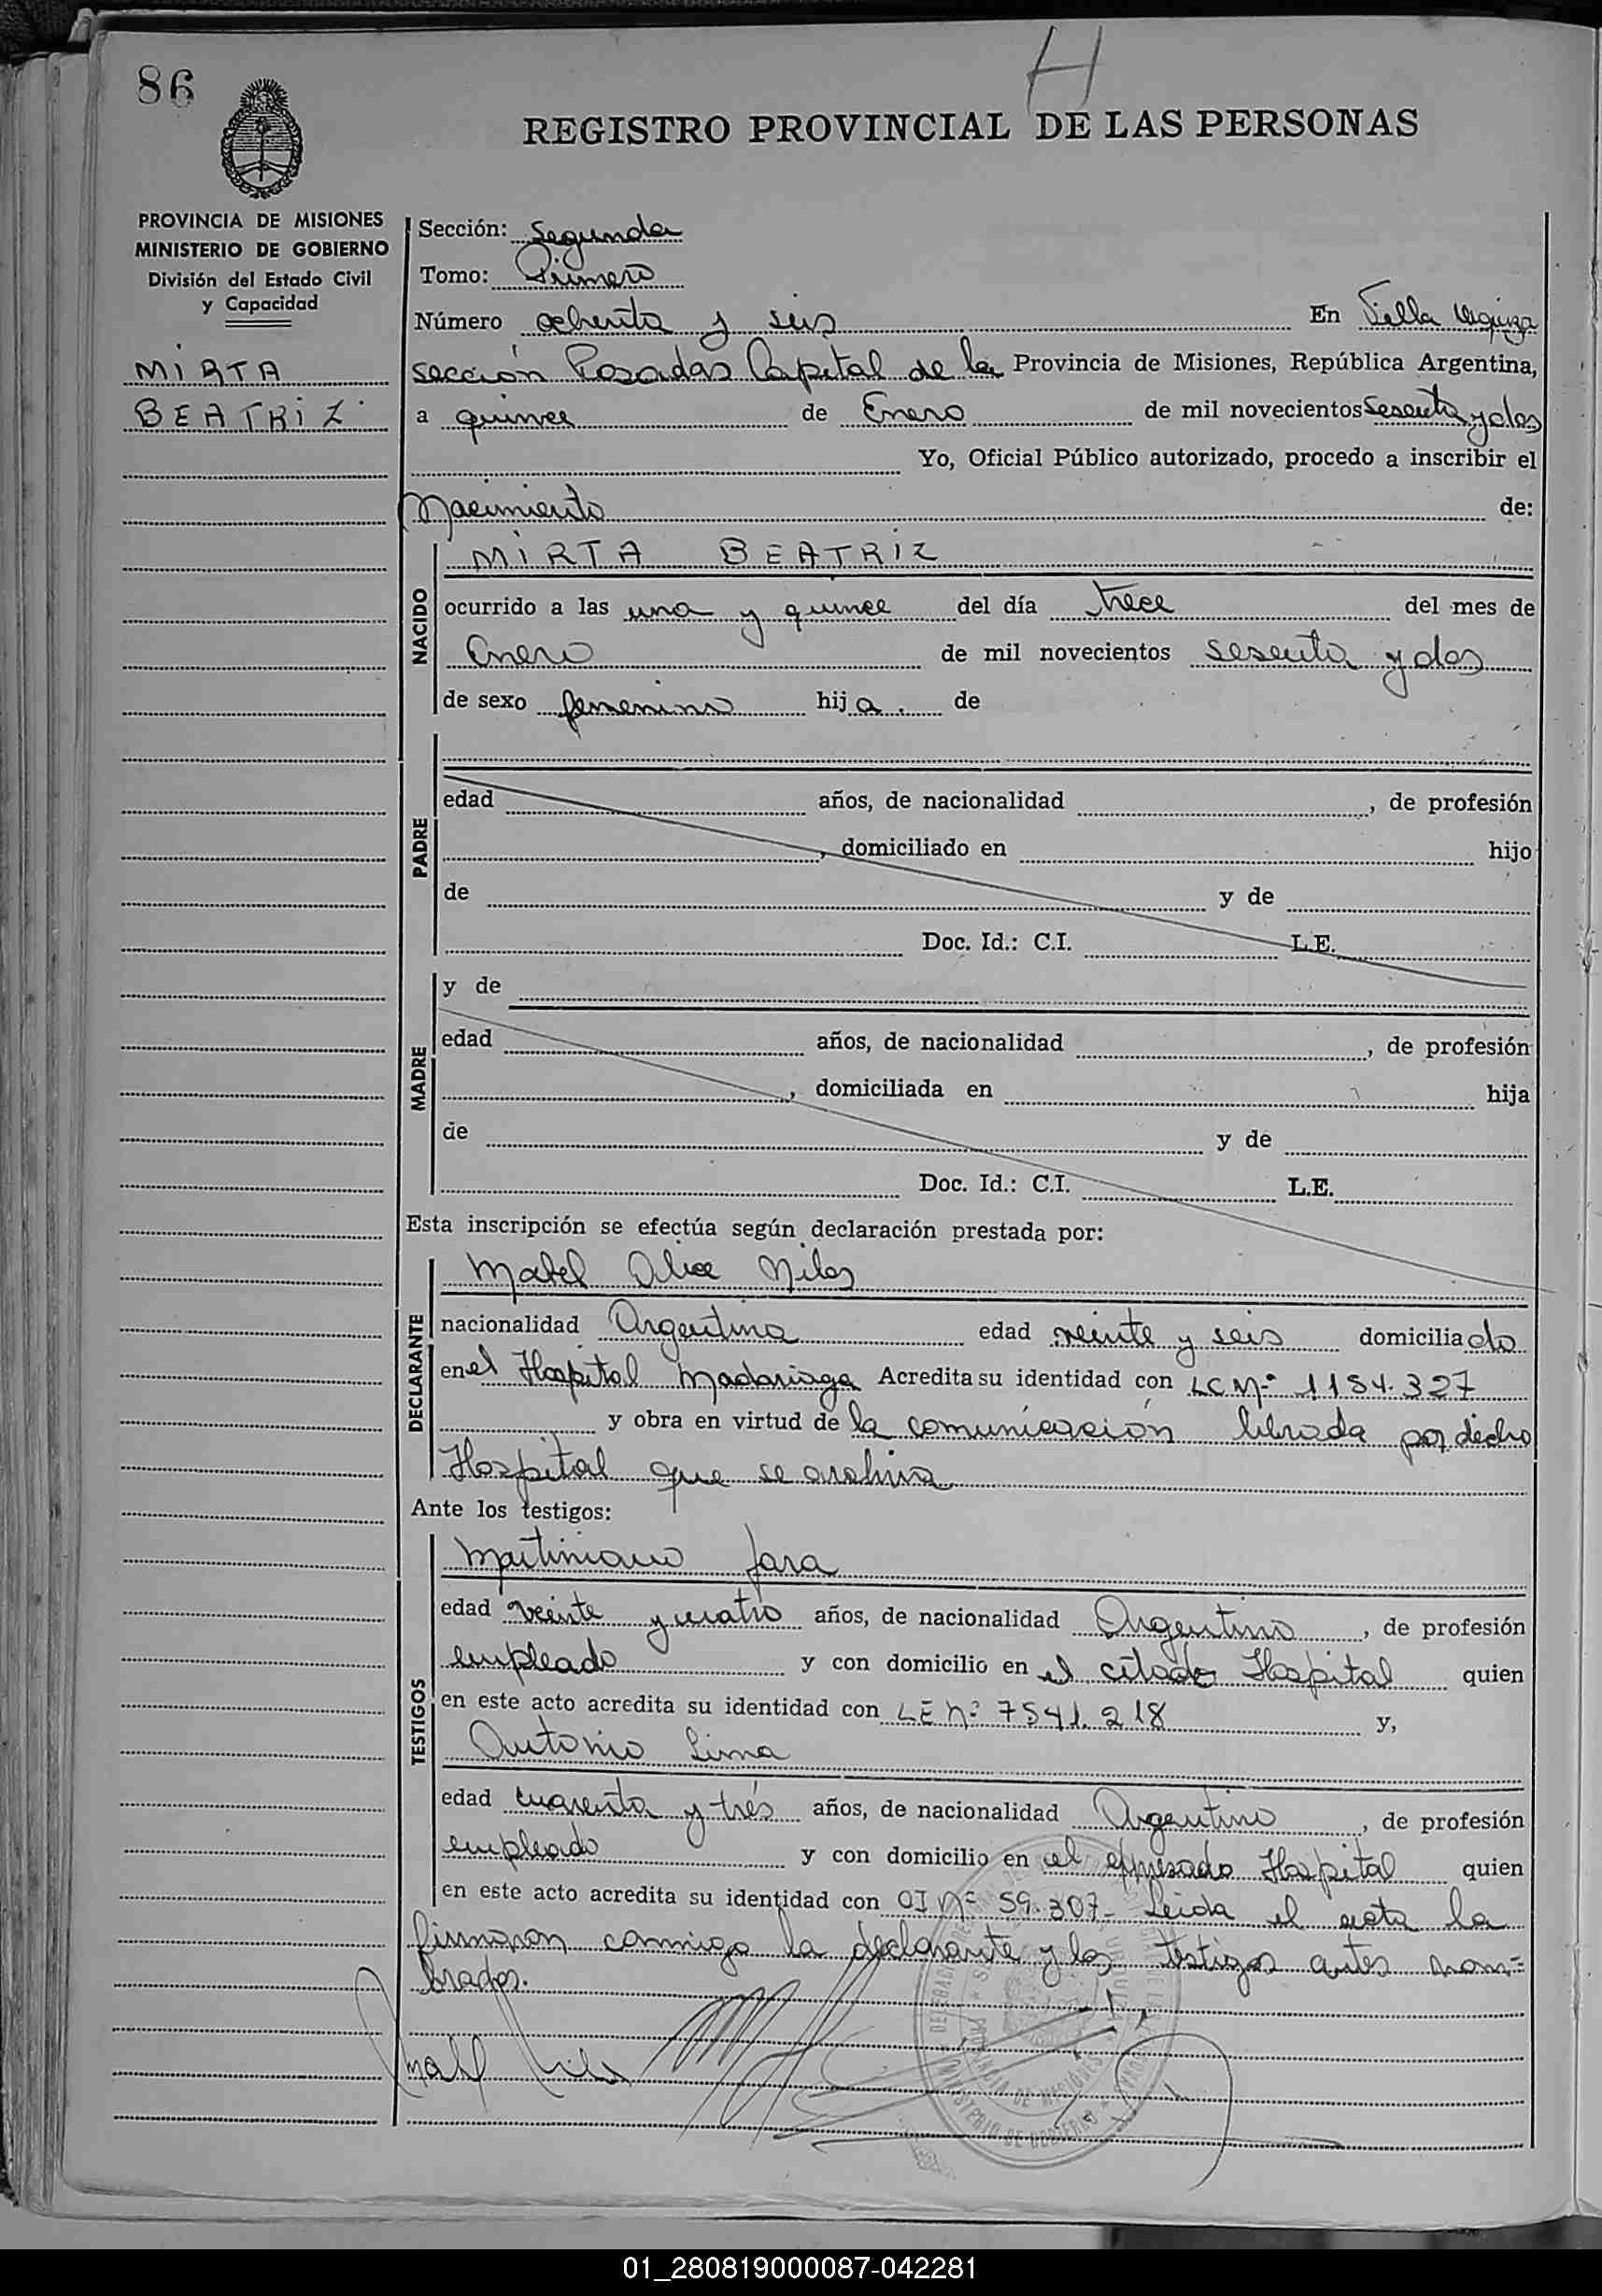 86
H
REGISTRO PROVINCIAL DE LAS PERSONAS
PROVINCIA DE MISIONES
MINISTERIO DE GOBIERNO
División del Estado Civil
y Capacidad
MIRTA
BEATRIZ
Sección: Segunda
Tomo: Primero
Número ochenta y seis En Villa Urquiza
sección Posadas Capital de la Provincia de Misiones, República Argentina,
a quince de Enero de mil novecientos Sesenta y dos
Yo, Oficial Público autorizado, procedo a inscribir el
Nacimiento de:
NACIDO
MIRTA BEATRIZ
ocurrido a las una y quince del día trece del mes de
Enero de mil novecientos sesenta y dos
de sexo femenino hija. de
PADRE
edad años, de nacionalidad , de profesión
, domiciliado en hijo
de y de
Doc. Id.: C.I. L.E.
MADRE
y de
edad años, de nacionalidad , de profesión
, domiciliada en hija
de y de
Doc. Id.: C.I. L.E.
Esta inscripción se efectúa según declaración prestada por:
DECLARANTE
Mabel Alice
nacionalidad Argentina edad veinte y seis domiciliado
en el Hospital Madariaga Acredita su identidad con LC Nº 1154.327
y obra en virtud de la comunicación librada por dicho
Hospital que se archiva
Ante los testigos:
TESTIGOS
Martiniano Jara
edad veinte y cuatro años, de nacionalidad Argentino, de profesión
empleado y con domicilio en el citado Hospital quien
en este acto acredita su identidad con LE nº 7541.218 y,
Antonio Lima
edad cuarenta y trés años, de nacionalidad Argentino, de profesión
empleado y con domicilio en el expresado Hospital quien
en este acto acredita su identidad con CI Nº 59.307- Leida el acta la
firmaron conmigo la declarante y los testigos antes nom=
brados.
Mabel
MINISTERIO DE GOBIERNO
PROVINCIA DE MISIONES
01_280819000087-042281